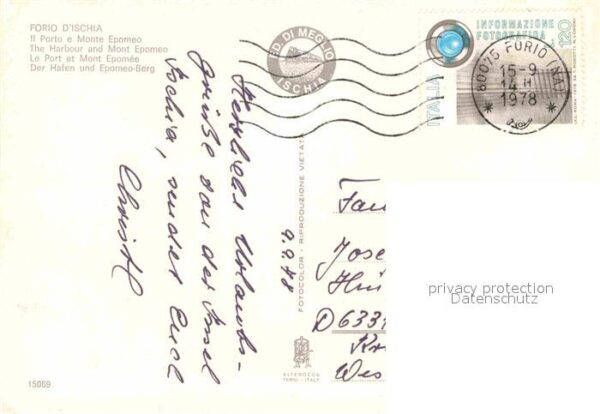 FORIO D'ISCHIA
Il Porto e Monte Epomeo
The Harbour and Mont Epomeo
Le Port et Mont Epomée
Der Hafen und Epomeo-Berg
ED. DI MEGLIO
ISCHIA
INFORMAZIONE
FOTOGRAFICA
ITALIA
120
80075 FORIO (NA)
15-9
14 H
1978
Herzliche Urlaubs-
grüße von der Insel
Ischia, sendet Euch
Christl
9.9.78
FOTOCOLOR - RIPRODUZIONE VIETATA
KLETEROCUS
TERNI - ITALY
Fam
Jose
D 633
Kr
Wes
privacy protection
Datenschutz
15069